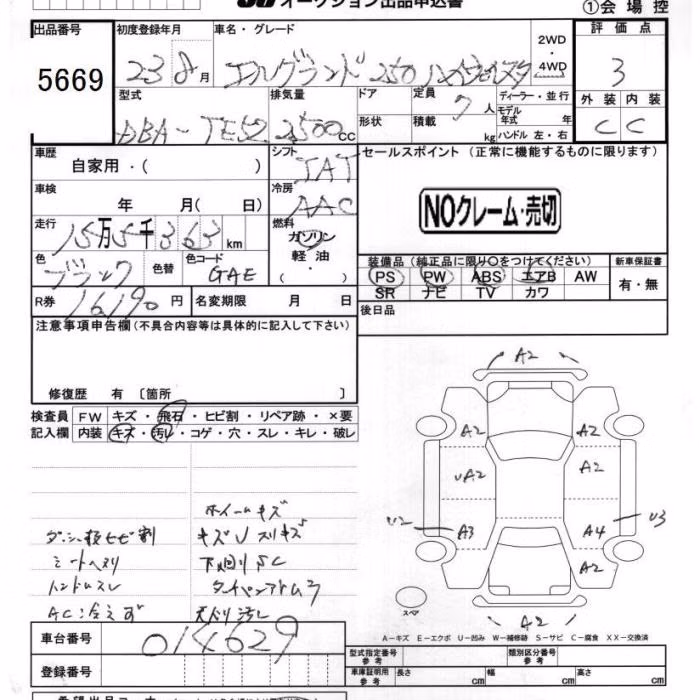 オークション出品申込書
①会場控
出品番号 初度登録年月 車名・グレード 2WD・4WD 評価点
5669 23 8月 エルグランド 250 ハイウェイスター 3
型式 排気量 ドア 定員 ディーラー・並行 外装 内装
形状 積載 7人 モデル年式 年
DBA-TE52 2500cc kg ハンドル 左・右 C C
車歴 自家用・( ) シフト IAT セールスポイント (正常に機能するものに限ります)
車検 年 月( 日) 冷房 AAC
NOクレーム・売切
走行 15万5千363km 燃料 ガソリン
色 ブラック 色替 色コード GAE 軽油 ( ・ )
装備品(純正品に限り○をつけてください) 新車保証書
PS PW ABS エアB AW 有・無
SR ナビ TV カワ
R券 16190円 名変期限 月 日 後日品
注意事項申告欄(不具合内容等は具体的に記入して下さい)
修復歴 有〔箇所 〕
検査員 FW キズ・飛石・ヒビ割・リペア跡・×要
記入欄 内装 キズ・汚レ・コゲ・穴・スレ・キレ・破レ
A2
A2 A2
UA2 A2
U2 A3 A4 U3
A2
A2
スペア
ホイールキズ
ダッシュ板ヒビ割 キズU スリキズ
シートヘタリ 下廻りSC
ハンドルスレ
ACガス冷えず 天張り汚レ
車台番号 014629
登録番号
A-キズ E-エクボ U-凹み W-補修跡 S-サビ C-腐食 XX-交換済
型式指定番号 参考 類別区分番号 参考
車庫証明用 参考 長さ cm 幅 cm 高さ cm